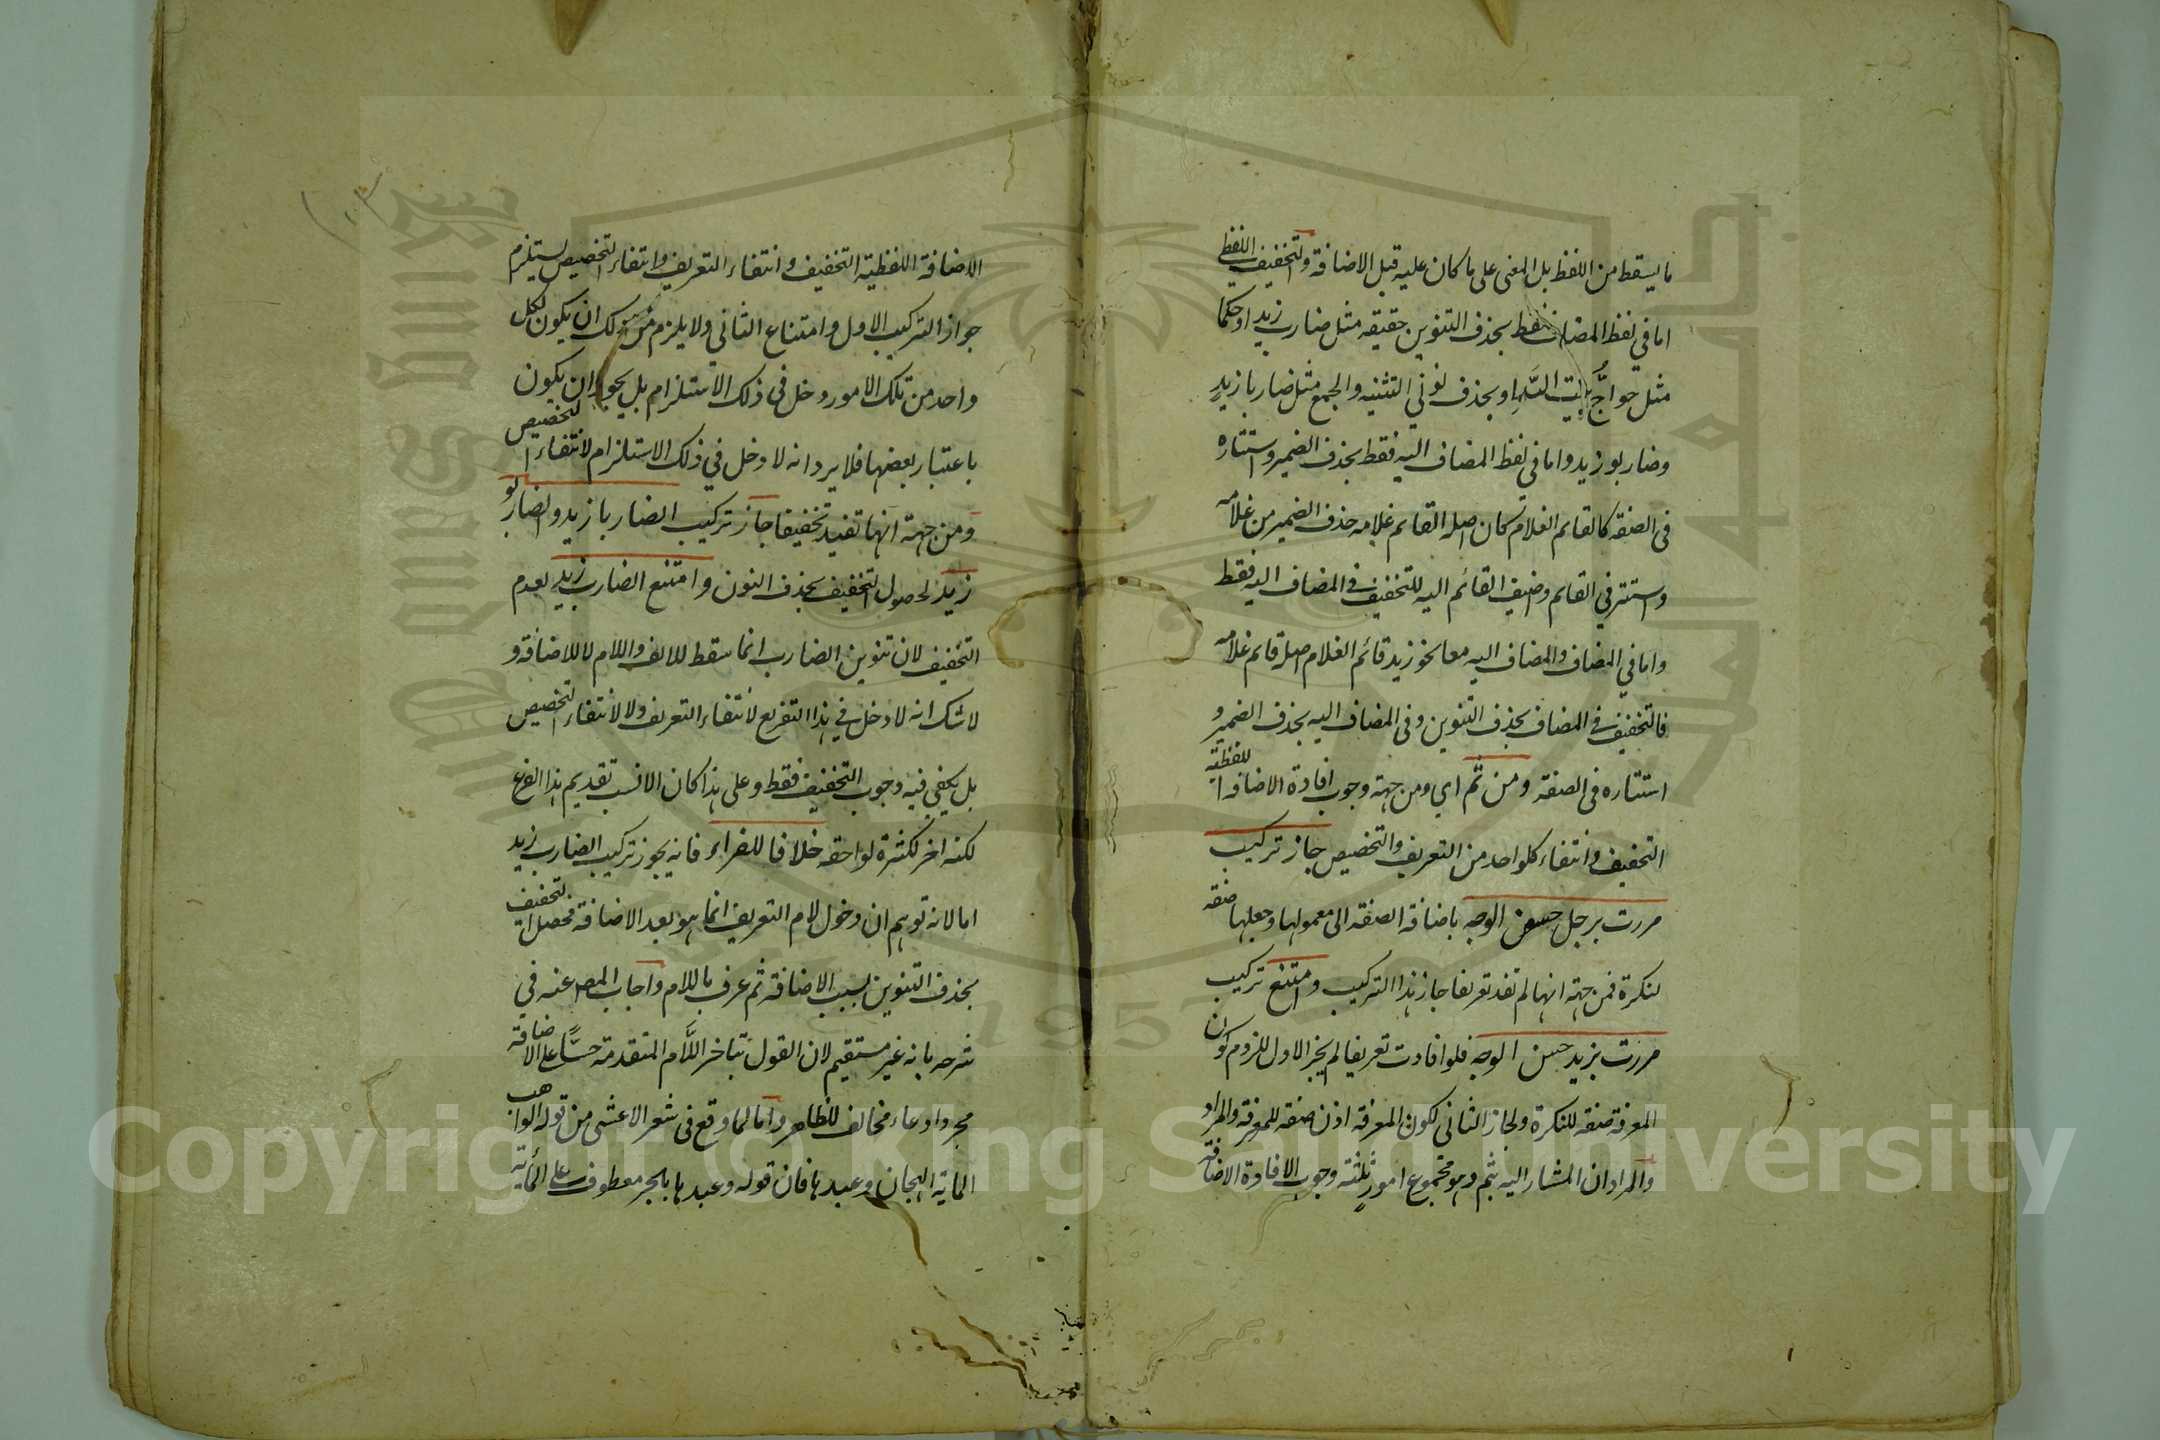 ما يسقط من اللفظ بل المعنى على ما كان عليه قبل الاضافة والتخفيف اللفظى
اما في لفظ المضاف فقط بحذف التنوين حقيقه مثل ضارب زيد او حكما
مثل حواجّ بيت الله او بحذف نوني التثنيه والجمع مثل ضاربا زيدٍ
وضاربو زيد واما في لفظ المضاف اليه فقط بحذف الضمير واستتاره
في الصفة كالقائم الغلام كان اصله القائم غلامه حذف الضمير من غلامه
واستتر في القائم واضيف القائم اليه للتخفيف في المضاف اليه فقط
واما في المضاف والمضاف اليه معا نحو زيد قائم الغلام اصله قائم غلامه
فالتخفيف في المضاف بحذف التنوين وفي المضاف اليه بحذف الضمير و
استتاره في الصفة ومن ثَمّ اي ومن جهة وجوب افادة الاضافة اللفظية
التخفيف وانتفاء كل واحد من التعريف والتخصيص جاز تركيب
مررت برجل حسن الوجه باضافة الصفة الى معمولها وجعلها صفة
لنكرة فمن جهة انها لم تفد تعريفا جاز هذا التركيب وامتنع تركيب
مررت بزيد حسن الوجه فلو افادت تعريفا لم يجز الاول للزوم كون
المعرفة صفة للنكرة ولجاز الثاني لكون المعرفة اذن صفة للمعرفة والمراد
والمراد ان المشار اليه بثم وهو مجموع امورٍ ثلثة وجوب الافادة الاضافة
الاضافة اللفظية التخفيف وانتفاء التعريف وانتفاء التخصيص يستلزم
جواز التركيب الاول وامتناع الثاني ولا يلزم من ذلك ان يكون لكل
واحد من تلك الامور دخل في ذلك الاستلزام بل يجوز ان يكون
باعتبار بعضها فلا يرد انه لا دخل في ذلك الاستلزام لانتفاء التخصيص
ومن جهة انها تفيد تخفيفا جاز تركيب الضاربا زيد والضاربو
زيد لحصول التخفيف بحذف النون وامتنع الضارب زيد لعدم
التخفيف لان تنوين الضارب انما سقط للالف واللام لا للاضافة و
لا شك انه لا دخل في هذا التفريع لانتفاء التعريف ولا لانتفاء التخصيص
بل يكفي فيه وجوب التخفيف فقط وعلى هذا كان الانسب تقديم هذا الفرع
لكنه اخر لكثرة لواحقه خلافا للفراء فانه يجوز تركيب الضارب زيد
اما لانه توهم ان دخول لام التعريف انما هو بعد الاضافة فحصل التخفيف
بحذف التنوين بسبب الاضافة ثم عرف باللام واجاب المص عنه في
شرحه بانه غير مستقيم لان القول بتاخر اللَّام المتقدمة حسًّا على الاضافة
مجرد ادعاء مخالف للظاهر واما لما وقع في شعر الاعشى من قوله الواهب
الماية الهجان وعبدها فان قوله وعبدها بالجر معطوف على المأية
Copyright © King Saud University
King Saud University
1957